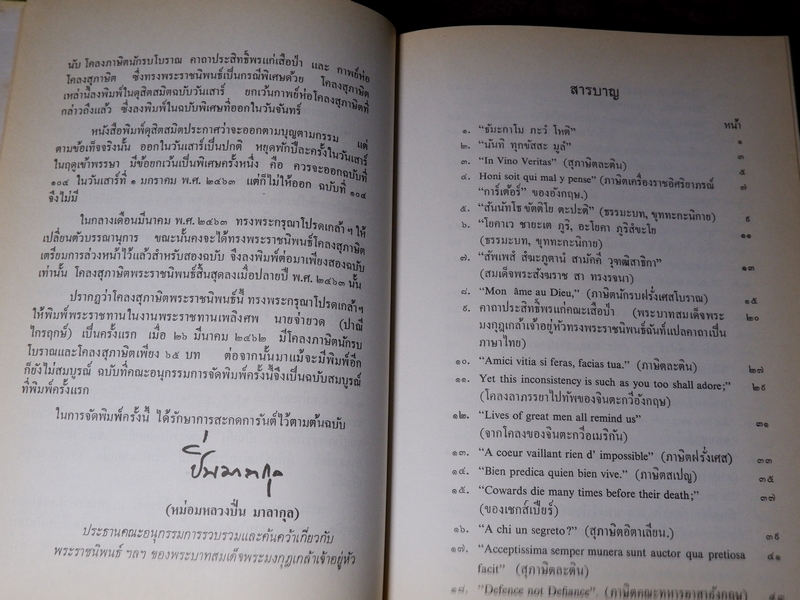 นับ โคลงภาษิตนักรบโบราณ คาถาประสิทธิ์พรแก่เสือป่า และ กาพย์ห่อ
โคลงสุภาษิต ซึ่งทรงพระราชนิพนธ์เป็นกรณีพิเศษด้วย โคลงสุภาษิต
เหล่านี้ลงพิมพ์ในดุสิตสมิตฉบับวันเสาร์ ยกเว้นกาพย์ห่อโคลงสุภาษิตที่
กล่าวถึงแล้ว ซึ่งลงพิมพ์ในฉบับพิเศษที่ออกในวันจันทร์
หนังสือพิมพ์ดุสิตสมิตประกาศว่าจะออกตามบุญตามกรรม แต่
ตามข้อเท็จจริงนั้น ออกในวันเสาร์เป็นปกติ หยุดพักปีละครั้งในวันเสาร์
ในฤดูเข้าพรรษา มีข้อยกเว้นเป็นพิเศษครั้งหนึ่ง คือ ควรจะออกฉบับที่
๑๐๔ ในวันเสาร์ที่ ๑ มกราคม พ.ศ. ๒๔๖๓ แต่ก็ไม่ให้ออก ฉบับที่ ๑๐๔
จึงไม่มี
ในกลางเดือนมีนาคม พ.ศ. ๒๔๖๓ ทรงพระกรุณาโปรดเกล้า ฯ ให้
เปลี่ยนตัวบรรณานุการ ขณะนั้นคงจะได้ทรงพระราชนิพนธ์โคลงสุภาษิต
เตรียมการล่วงหน้าไว้แล้วสำหรับสองฉบับ จึงลงพิมพ์ต่อมาเพียงสองฉบับ
เท่านั้น โคลงสุภาษิตพระราชนิพนธ์สิ้นสุดลงเมื่อปลายปี พ.ศ. ๒๔๖๓ นั้น
ปรากฏว่าโคลงสุภาษิตพระราชนิพนธ์นี้ ทรงพระกรุณาโปรดเกล้าฯ
ให้พิมพ์พระราชทานในงานพระราชทานเพลิงศพ นายจ่ายวด (ปาณี
ไกรฤกษ์) เป็นครั้งแรก เมื่อ ๒๖ มีนาคม ๒๔๖๒ มีโคลงภาษิตนักรบ
โบราณและโคลงสุภาษิตเพียง ๖๕ บท ต่อจากนั้นมาแม้จะมีพิมพ์อีก
ก็ยังไม่สมบูรณ์ ฉบับที่คณะอนุกรรมการจัดพิมพ์ครั้งนี้จึงเป็นฉบับสมบูรณ์
ที่พิมพ์ครั้งแรก
ในการจัดพิมพ์ครั้งนี้ ได้รักษาการสะกดการันต์ไว้ตามต้นฉบับ
ปิ่น มาลากุล
(หม่อมหลวงปิ่น มาลากุล)
ประธานคณะอนุกรรมการรวบรวมและค้นคว้าเกี่ยวกับ
พระราชนิพนธ์ ฯลฯ ของพระบาทสมเด็จพระมงกุฎเกล้าเจ้าอยู่หัว
สารบาญ
หน้า
๑. "ธัมะกาโม ภะวํ โหติ" ๑
๒. "นันทิ ทุกขัสสะ มูลํ" ๓
๓. "In Vino Veritas" (สุภาษิตละติน) ๕
๔. Honi soit qui mal y pense" (ภาษิตเครื่องราชอิศริยาภรณ์ ๗
"การ์เต้อร์" ของอังกฤษ.)
๕. "สันนัทโธ ขัตติโย ตะปะติ" (ธรรมะบท, ขุททะกะนิกาย) ๙
๖. "โยคาเว ชายะเต ภูริ, อะโยคา ภูริสังขะโย ๑๑
(ธรรมะบท, ขุททะกะนิกาย)
๗. "สัพเพสํ สํฆะภูตานํ สามัคคี วุฑฒิสาธิกา" ๑๓
(สมเด็จพระสังฆราช สา ทรงรจนา)
๘. "Mon âme au Dieu," (ภาษิตนักรบฝรั่งเศสโบราณ) ๑๕
๙. คาถาประสิทธิ์พรแก่คณะเสือป่า (พระบาทสมเด็จพระ ๒๐
มงกุฎเกล้าเจ้าอยู่หัวทรงพระราชนิพนธ์ฉันท์แปลคาถาเป็น
ภาษาไทย)
๑๐. "Amici vitia si feras, facias tua." (ภาษิตละติน) ๒๗
๑๑. Yet this inconsistency is such as you too shall adore;" ๒๙
(โคลงลาภรรยาไปทัพของจินตะกวีอังกฤษ)
๑๒. "Lives of great men all remind us" ๓๑
(จากโคลงของจินตะกวีอเมริกัน)
๑๓. "A coeur vaillant rien d' impossible" (ภาษิตฝรั่งเศส) ๓๓
๑๔. "Bien predica quien bien vive." (ภาษิตสเปญ) ๓๕
๑๕. "Cowards die many times before their death;" ๓๗
(ของเชกส์เปียร์)
๑๖. "A chi un segreto?" (สุภาษิตอิตาเลียน.) ๓๙
๑๗. "Acceptissima semper munera sunt auctor qua pretiosa ๔๑
facit" (สุภาษิตละติน)
๑๘. "Defence not Defiance". (ภาษิตคณะทหารอาสาอังกฤษ)